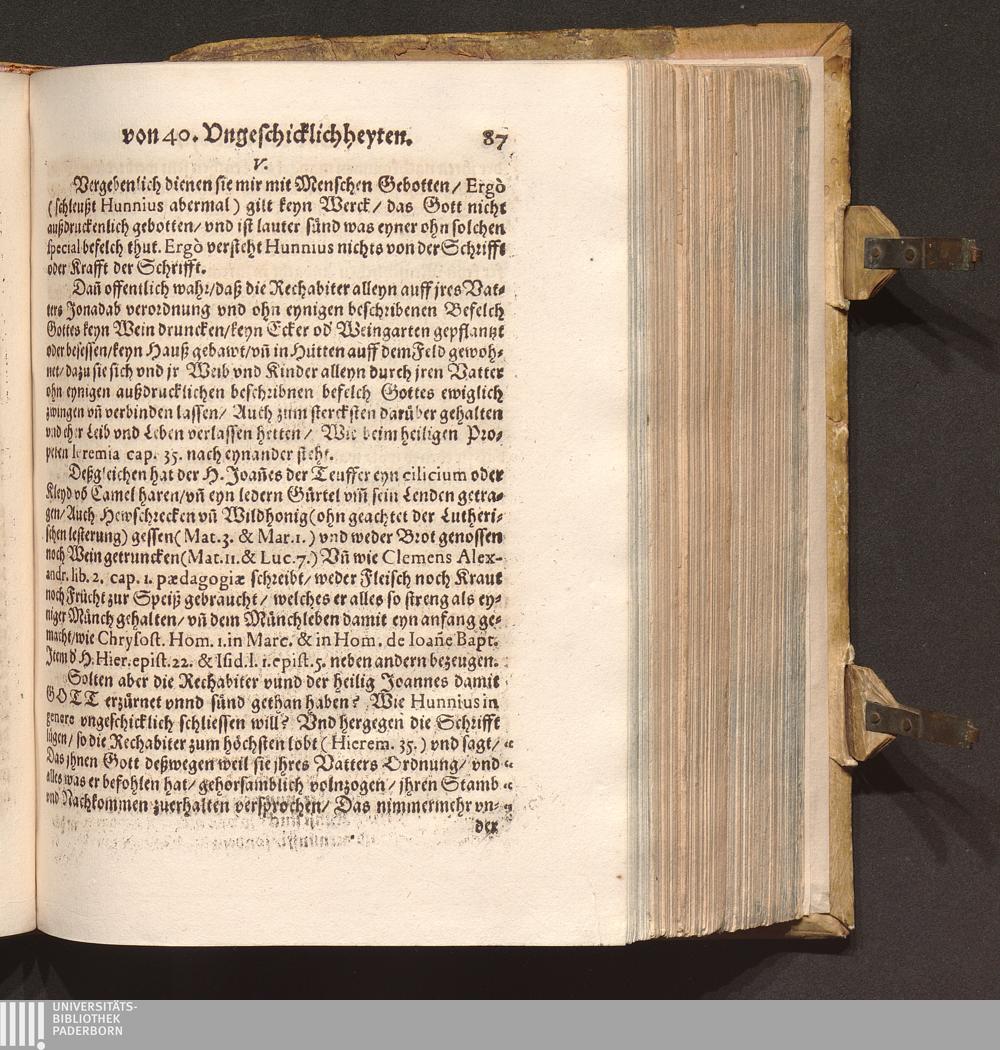 von 40. Vngeschicklichheyten. 87
V.
Vergebenlich dienen sie mir mit Menschen Gebotten / Ergò
(schleußt Hunnius abermal) gilt keyn Werck / das Gott nicht
außdruckenlich gebotten / vnd ist lauter sünd was eyner ohn solchen
special befelch thut. Ergò versteht Hunnius nichts von der Schrifft
oder Krafft der Schrifft.
Dañ offentlich wahr / daß die Rechabiter alleyn auff jres Vat-
ters Jonadab verordnung vnd ohn eynigen beschribenen Befelch
Gottes keyn Wein druncken / keyn Ecker od' Weingarten gepflantzt
oder besessen / keyn Hauß gebawt / vñ in Hütten auff dem Feld gewoh-
net / dazu sie sich vnd jr Weib vnd Kinder alleyn durch jren Vatter
ohn eynigen außdrucklichen beschribnen befelch Gottes ewiglich
zwingen vñ verbinden lassen / Auch zum stercksten darüber gehalten
vnd eher Leib vnd Leben verlassen hetten / Wie beim heiligen Pro-
peten Ieremia cap. 35. nach eynander steht.
Deßgleichen hat der H. Joañes der Teuffer eyn cilicium oder
Kleyd võ Camel haren / vñ eyn ledern Gürtel vm̃ sein Lenden getra-
gen / Auch Hewschrecken vñ Wildhonig (ohn geachtet der Lutheri-
schen lesterung) gessen (Mat. 3. & Mar. 1.) vnd weder Brot genossen
noch Wein getruncken (Mat. 11. & Luc. 7.) Vñ wie Clemens Alex-
andr. lib. 2. cap. 1. pædagogiæ schreibt / weder Fleisch noch Kraut
noch Frücht zur Speiß gebraucht / welches er alles so streng als ey-
niger Münch gehalten / vñ dem Münchleben damit eyn anfang ge-
macht / wie Chrysost. Hom. 1. in Marc. & in Hom. de Ioañe Bapt.
Item d' H. Hier. epist. 22. & Isid. l. 1. epist. 5. neben andern bezeugen.
Solten aber die Rechabiter vund der heilig Joannes damit
GOTT erzürnet vnnd sünd gethan haben? Wie Hunnius in
genere vngeschicklich schliessen will? Vnd hergegen die Schrifft
lügen / so die Rechabiter zum höchsten lobt (Hierem. 35.) vnd sagt /
Das jhnen Gott deßwegen weil sie jhres Vatters Ordnung / vnd
alles was er befohlen hat / gehorsamblich volnzogen / jhren Stamb
vnd Nachkommen zuerhalten versprochen / Das nimmermehr vn-
der
UNIVERSITÄTS-
BIBLIOTHEK
PADERBORN